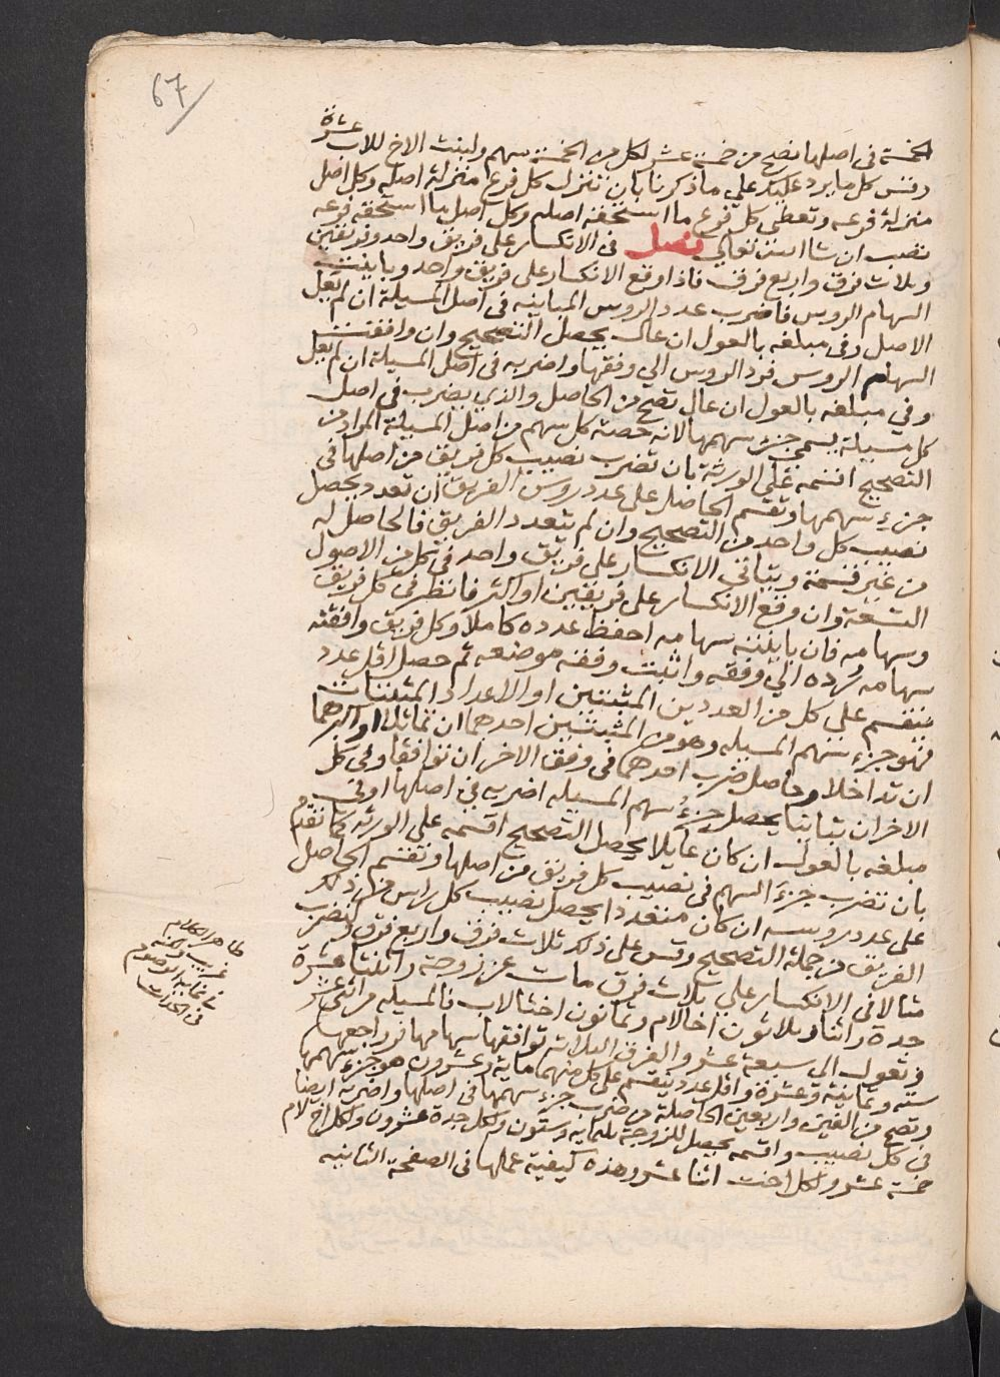 67
الخمسة في اصلها تصح من خمسة عشر لكل من الخمسة سهم ولبنت الاخ للاب عشرة
وقس كل ما يرد عليك علي ما ذكرنا بان تنزل كل فرع منزلة اصله وكل اصل
منزلة فرعه وتعطي كل فرع ما استحقه اصله وكل اصل ما استحقه فرعه
تصب ان شا الله تعالي فصل في الانكسار علي فريق واحد وفريقين
وثلاث فرق واربع فرق فاذا وقع الانكسار علي فريق واحد وباينت
السهام الروس فاضرب عدد الروس المباينه في اصل المسيلة ان لم تعل
الاصل وفي مبلغه بالعول ان عال يحصل التصحيح وان وافقت
السهام الروس فرد الروس الي وفقها واضربه في اصل المسيلة ان لم تعل
وفي مبلغه بالعول ان عال تصح من الحاصل والذي يضرب في اصل
كل مسيلة يسمي جزء سهمها لانه حصة كل سهم من اصل المسيلة المراد من
التصحيح اقسمه علي الورثة بان تضرب نصيب كل فريق من اصلها في
جزء سهمها وتقسم الحاصل علي عدد روس الفريق ان تعدد يحصل
نصيب كل واحد من التصحيح وان لم يتعدد الفريق فالحاصل له
من غير قسمة ويتاتي الانكسار علي فريق واحد في كل من الاصول
التسعة وان وقع الانكسار علي فريقين او اكثر فانظر في كل فريق
وسهامه فان باينته سهامه احفظ عدده كاملا وكل فريق وافقته
سهامه رده الي وفقه واثبت وفقه موضعه ثم حصل اقل عدد
ينقسم علي كل من العددين المثبتين او الاعداد المثبتات
فهو جزء سهم المسيله وهو من المثبتين احدهما ان تماثلا او اكثرهما
ان تداخلا وحاصل ضرب احدهما في وفق الاخر ان توافقا وفي كل
الاخر ان تباينا يحصل جزء سهم المسيله اضربه في اصلها او في
مبلغه بالعول ان كان عايلا يحصل التصحيح اقسمه علي الورثه كما تقدم
بان تضرب جزء السهم في نصيب كل فريق من اصلها وتقسم الحاصل
علي عدد روسه ان كان متعددا يحصل نصيب كل راس من ذلك
الفريق من جملة التصحيح وقس علي ذلك ثلاث فرق واربع فرق ولنضرب
مثالا في الانكسار علي ثلاث فرق مات عن زوجة واثنتا عشرة
جدة واثنا وثلاثون اخا لام وثمانون اختا لاب فالمسيله من اثني عشر
وتعول الي سبعة عشر والفرق الثلاثه توافقها سهامها فراجعها
سته وثمانية وعشرة واقل عدد ينقسم علي كل منهما ماية وعشرون هو جزء سهمها
وتصح من الفين واربعين الحاصلة من ضرب جزء سهمها في اصلها واضربه ايضا
في كل نصيب واقسمه يحصل للزوجة ثلثمايه وستون ولكل جدة عشرون ولكل اخ لام
خمسة عشر ولكل اخت اثنا عشر وهذه كيفية عملها في الصفحة الثانيه